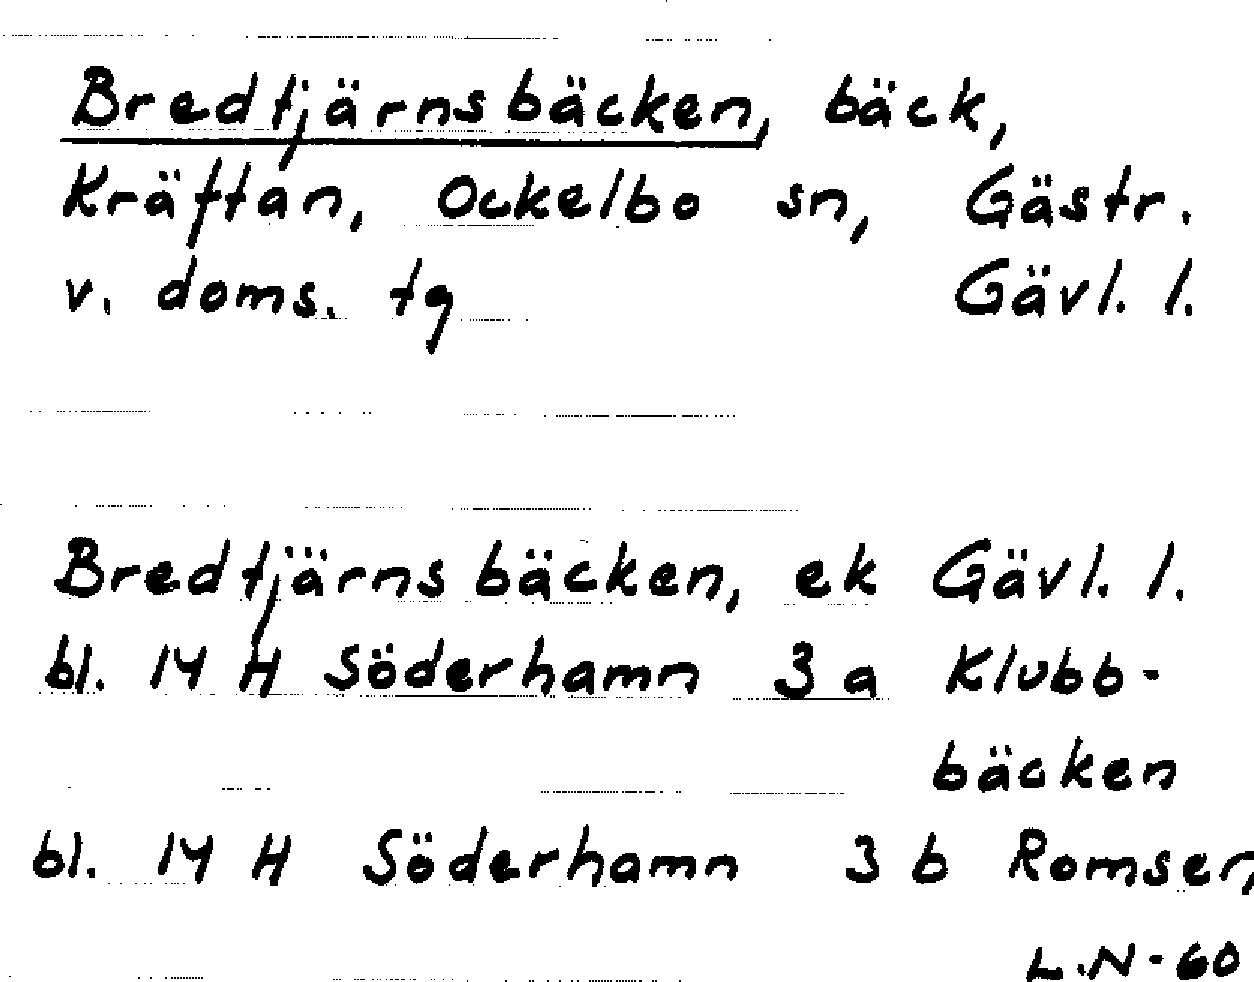 Bredtjärnsbäcken, bäck,
Kräftan, Ockelbo sn, Gästr.
v. doms. tg Gävl. l.
Bredtjärnsbäcken, ek Gävl. l.
bl. 14 H Söderhamn 3 a Klubb-
bäcken
bl. 14 H Söderhamn 3 b
L.N-60